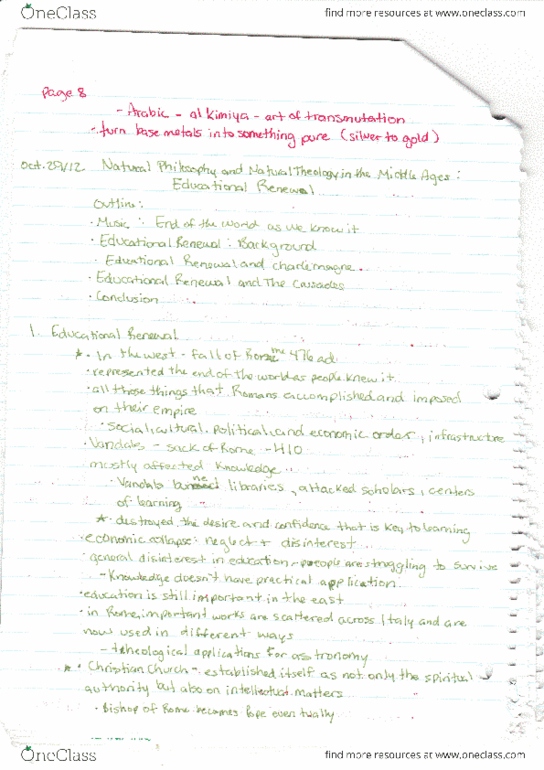 OneClass
find more resources at www.oneclass.com
Page 8
- Arabic - al kimiya - art of transmutation
- turn base metals into something pure (silver to gold)
Oct. 29/12 Natural Philosophy and Natural Theology in the Middle Ages:
Educational Renewal
Outline:
· Music: End of the world as we know it
· Educational Renewal: Background
· Educational Renewal and Charlemagne
· Educational Renewal and The Crusades
· Conclusion
1. Educational Renewal
* · In the west - fall of Rome 476 ad
· represented the end of the world as people knew it
· all those things that Romans accomplished and imposed
on their empire
· social, cultural, political, and economic order, infrastructure
· Vandals - sack of Rome - 410
mostly affected knowledge
· Vandals libraries, attacked scholars, centers
of learning
* destroyed the desire and confidence that is key to learning
· economic collapse: neglect + disinterest
· general disinterest in education - people are struggling to survive
- Knowledge doesn't have practical application
· education is still important in the east
· in Rome, important works are scattered across Italy and are
now used in different ways
- theological applications for astronomy
* · Christian Church - established itself as not only the spiritual
authority but also on intellectual matters
· Bishop of Rome becomes Pope eventually
OneClass
find more resources at www.oneclass.com